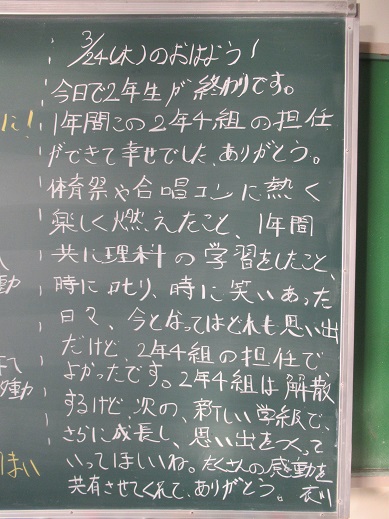 3/24(木)のおはよう!
今日で2年生が終わりです。
1年間この2年4組の担任
ができて幸せでした。ありがとう。
体育祭や合唱コンに熱く
楽しく燃えたこと、1年間
共に理科の学習をしたこと、
時に叱り、時に笑いあった
日々、今となってはどれも思い出
だけど、2年4組の担任で
よかったです。2年4組は解散
するけど、次の、新しい学級で、
さらに成長し、思い出をつくって
いってほしいね。たくさんの感動を
共有させてくれて、ありがとう。
に!
動
動
ほしい